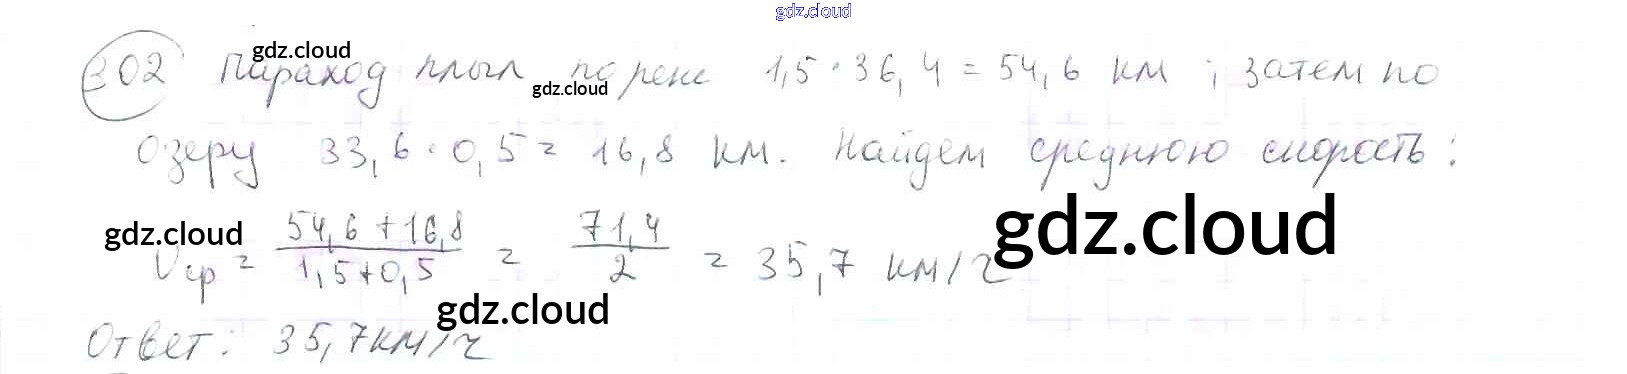 gdz.cloud
302 Параход плыл по реке 1,5 · 36,4 = 54,6 км ; затем по
gdz.cloud
gdz.cloud
озеру 33,6 · 0,5 = 16,8 км. Найдем среднюю скорость:
gdz.cloud
gdz.cloud
Vср = (54,6 + 16,8)/(1,5 + 0,5) = 71,4/2 = 35,7 км/ч
gdz.cloud
Ответ: 35,7 км/ч